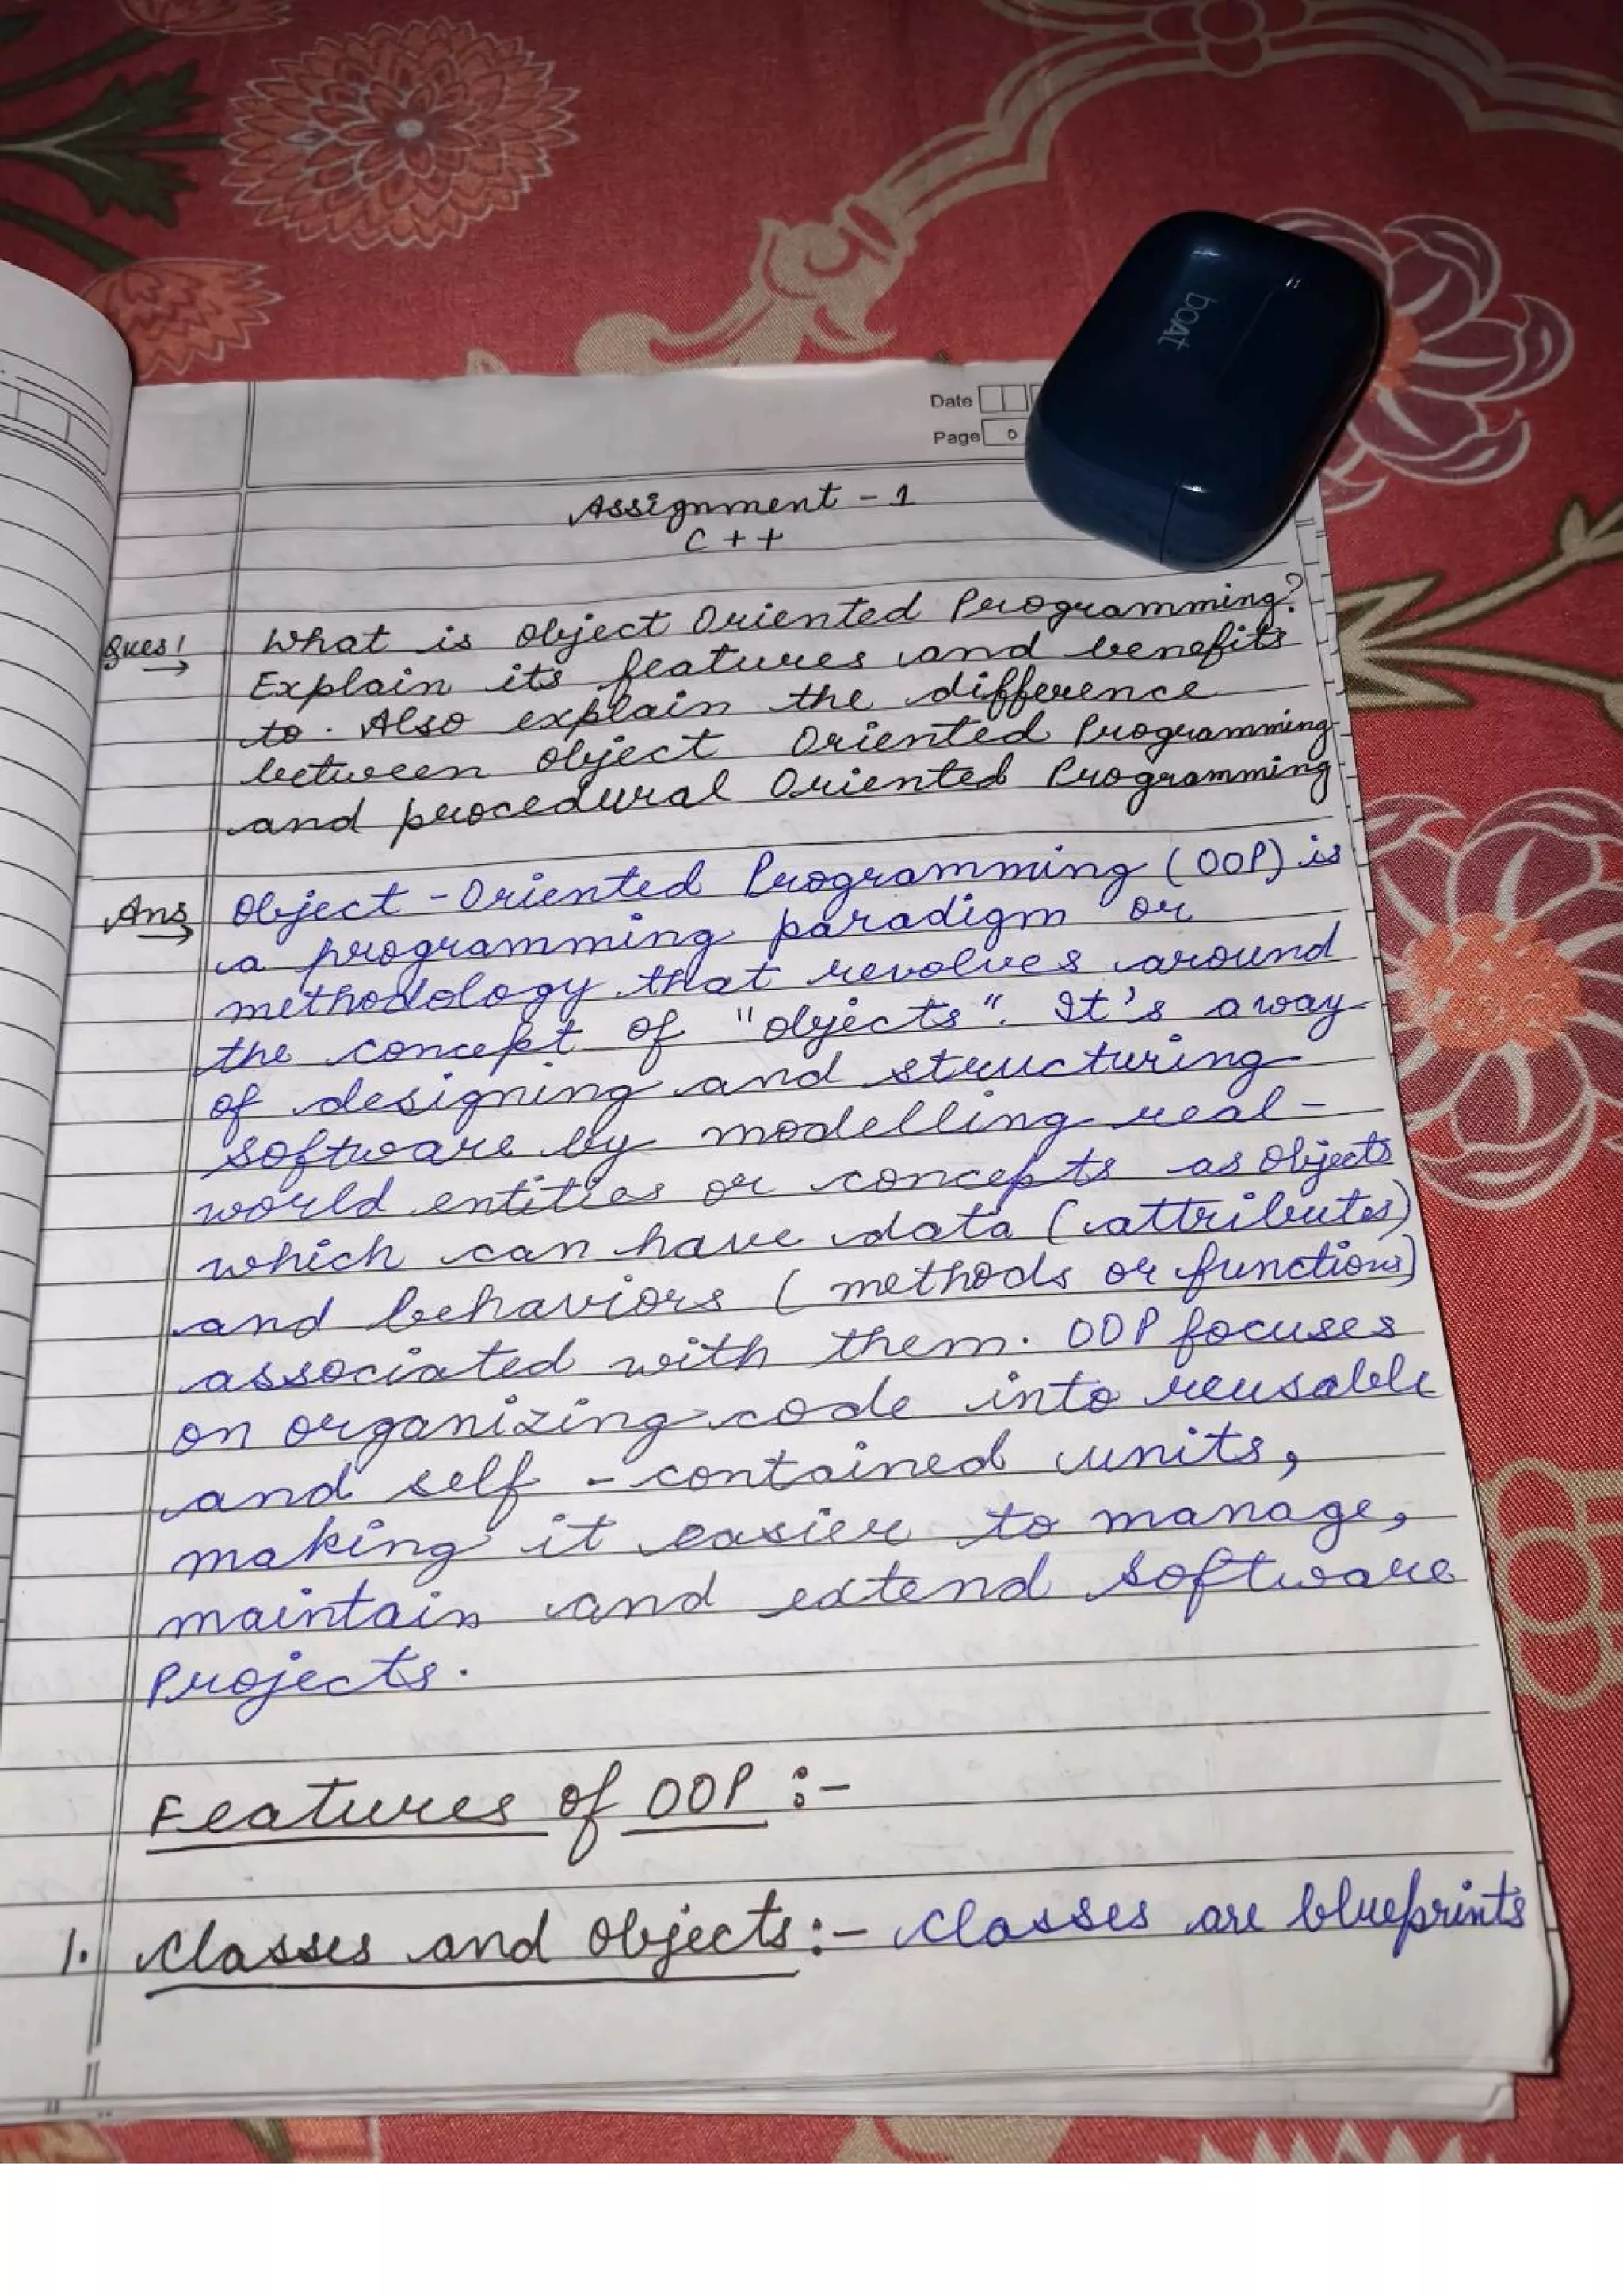 boAt
Date
Page
Assignment - 1
C++
Ques 1 What is Object Oriented Programming?
Explain its features and benefits
to. Also explain the difference
between Object Oriented Programming
and procedural Oriented Programming
Ans Object - Oriented Programming (OOP) is
a programming paradigm or
methodology that revolves around
the concept of "objects". It's a way
of designing and structuring
software by modelling real-
world entities or concepts as objects
which can have data (attributes)
and behaviors (methods or functions)
associated with them. OOP focuses
on organizing code into reusable
and self - contained units,
making it easier to manage,
maintain and extend software
Projects.
Features of OOP :-
1. Classes and Objects :- Classes are blueprints